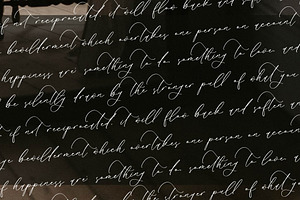 if not reciprocated it will flow back and soften
bewilderment which overtakes one person on account
happiness are something to do something to love and
be silently drawn by the stronger pull of what you
if not reciprocated it will flow back and soften a
ge bewilderment which overtakes one person on account
f happiness are something to do something to love a
the stronger pull of what yo